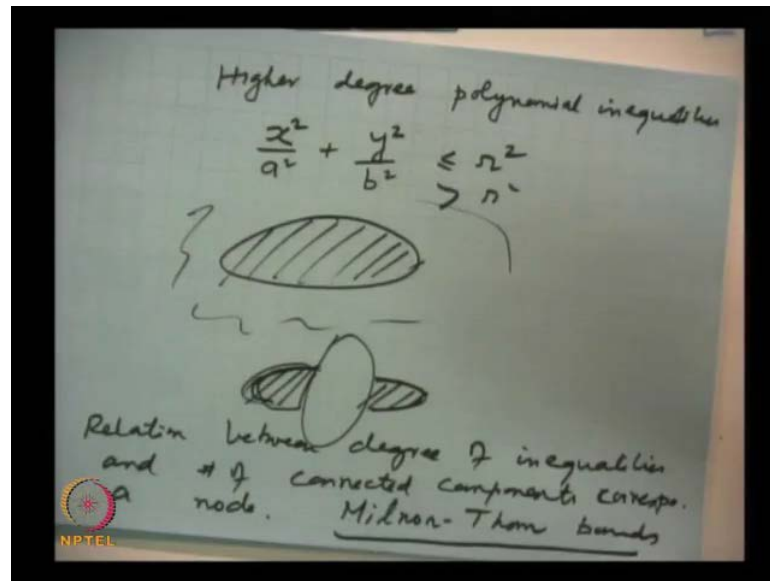 Higher degree polynomial inequalities
x²/a² + y²/b² ≤ r²
> r²
Relation between degree of inequalities
and # of connected components correspo.
a node. Milnor-Thom bounds
NPTEL